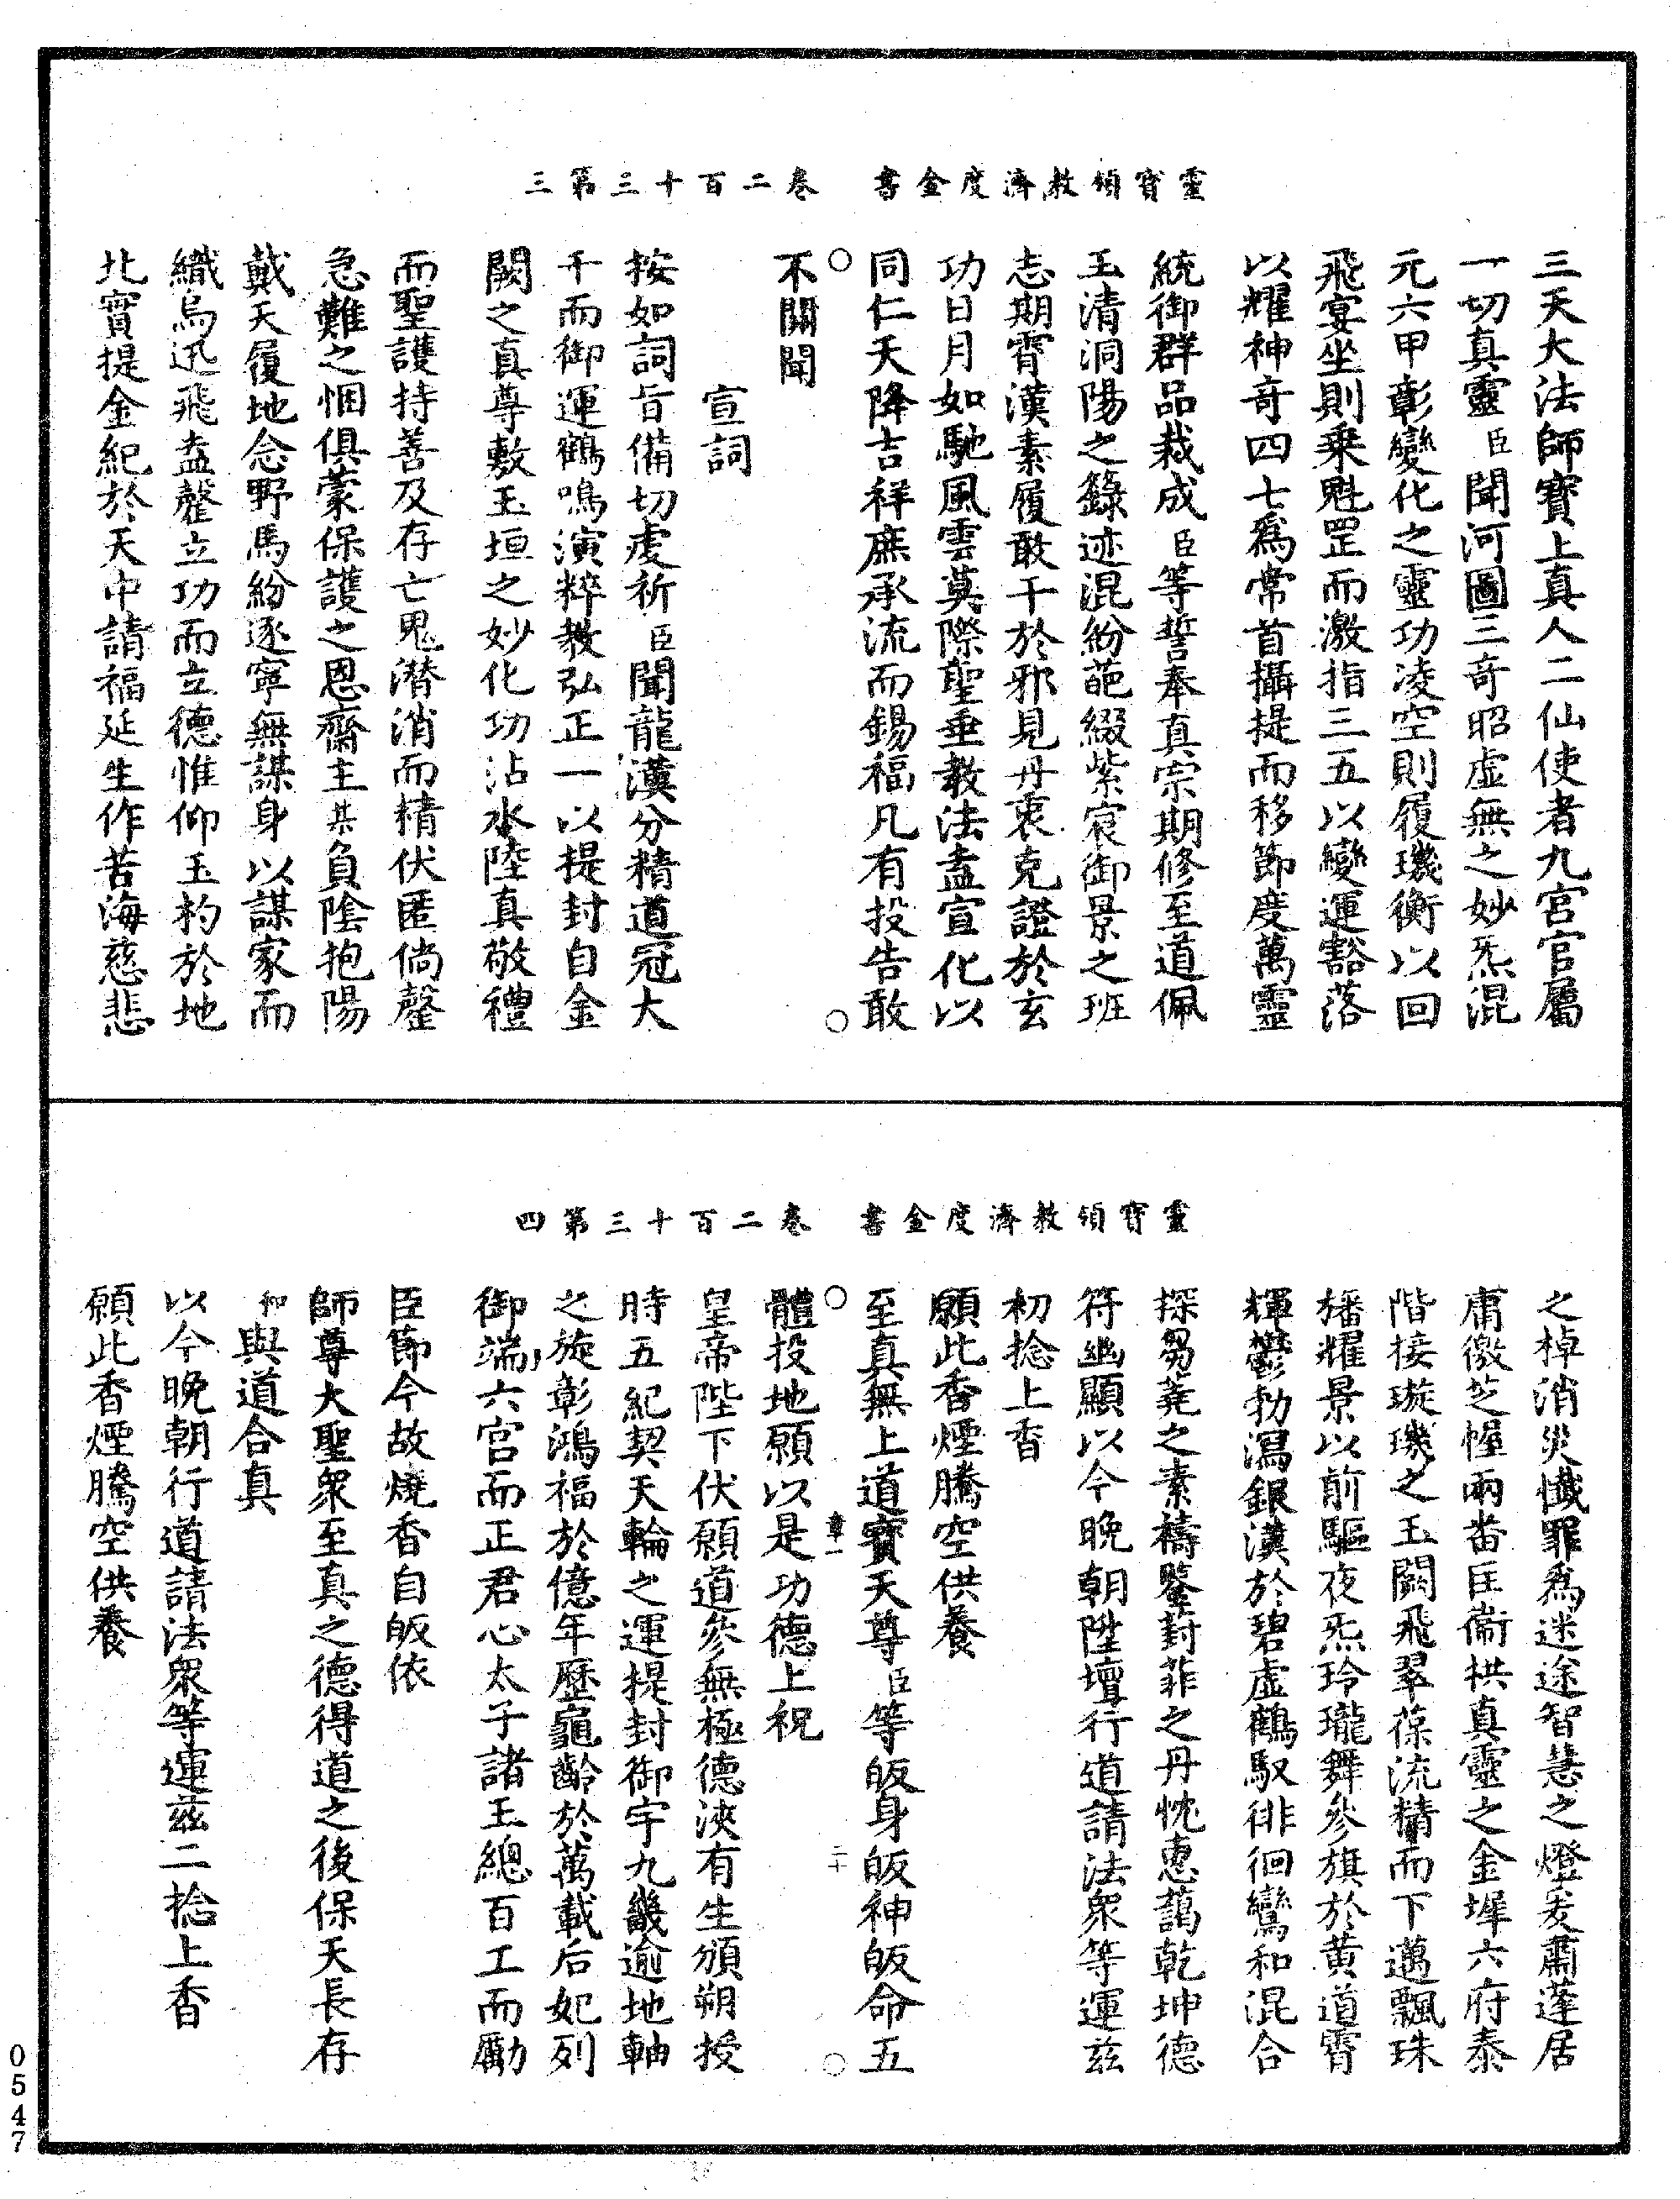 靈寶領教濟度金書　卷二百三十　第三
三天大法師寶上真人二仙使者九宮官屬
一切真靈臣聞河圖三奇昭虛無之妙炁混
元六甲彰變化之靈功凌空則履璣衡以回
飛宴坐則乗魁罡而激指三五以變運豁落
以耀神奇四七爲常首攝提而移節度萬靈
統御群品裁成臣等誓奉真宗期修至道佩
玉清洞陽之籙迹混紛葩綴紫宸御景之班
志期霄漢素履敢干於邪見丹衷克證於玄
功日月如馳風雲莫際聖垂教法盍宣化以
同仁天降吉祥庶承流而錫福凡有投告敢
不關聞
宣詞
按如詞旨備切虔祈臣聞龍漢分精道冠大
千而御運鶴鳴演粹教弘正一以提封自金
闕之真尊敷玉垣之妙化功沾水陸真敬禮
而聖護持善及存亡鬼潜消而精伏匿倘罄
急難之悃俱蒙保護之恩齋主某負陰抱陽
戴天履地念野馬紛逐寧無謀身以謀家而
織烏迅飛盍罄立功而立德惟仰玉杓於地
北實提金紀於天中請福延生作苦海慈悲
靈寶領教濟度金書　卷二百三十　第四
之棹消災懺罪爲迷途智慧之燈爰肅蓬居
庸徼芝幄兩畨匡衞拱真靈之金墀六府泰
階接璇璣之玉闕飛翠葆流精而下邁飄珠
旛耀景以前驅夜炁玲瓏舞參旗於黃道霄
輝鬱勃瀉銀漢於碧虛鶴馭徘徊鸞和混合
探芻蕘之素禱鑒葑菲之丹忱惠藹乾坤德
符幽顯以今晚朝陞壇行道請法衆等運兹
初捻上香
願此香煙騰空供養
至真無上道寶天尊臣等皈身皈神皈命五
體投地願以是功德上祝
皇帝陛下伏願道參無極德浹有生頒朔授
時五紀契天輪之運提封御宇九畿逾地軸
之旋彰鴻福於億年歷龜齡於萬載后妃列
御端六宫而正君心太子諸王總百工而勵
臣節今故燒香自皈依
師尊大聖衆至真之德得道之後保天長存
和與道合真
以今晚朝行道請法衆等運兹二捻上香
願此香煙騰空供養
章一
二十
0547